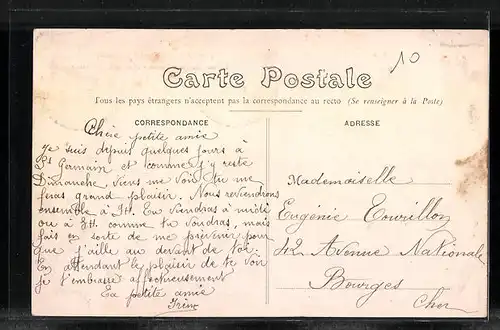 10
Carte Postale
Tous les pays étrangers n'acceptent pas la correspondance au recto (Se renseigner à la Poste)
CORRESPONDANCE
Chère petite amie
Je suis depuis quelques jours à
St Germain et comme j'y reste
Dimanche viens me voir tu me
feras grand plaisir. Nous reviendrons
ensemble à 7H. Tu viendras à midi
ou à 2H. comme tu voudras, mais
fais en sorte de me prévenir pour
que j'aille au devant de toi.
En attendant le plaisir de te voir
je t'embrasse affectueusement
Ta petite amie
ADRESSE
Mademoiselle
Eugénie Tourillon
42 Avenue Nationale
Bourges
Cher